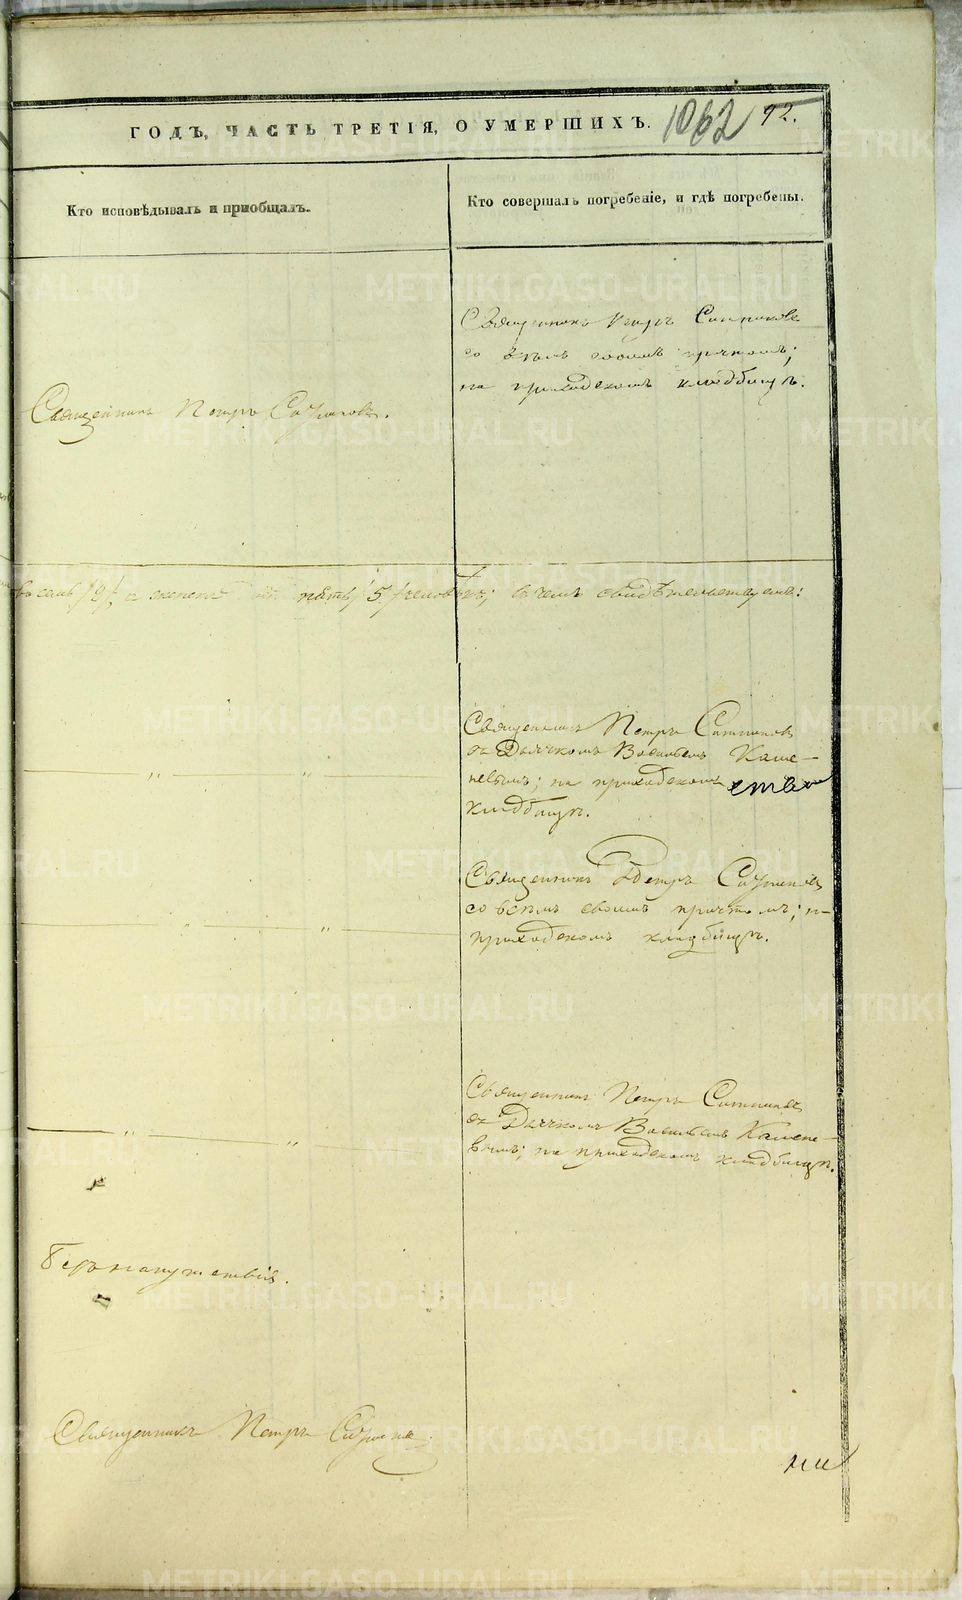 ГОДЪ, ЧАСТЬ ТРЕТІЯ, О УМЕРШИХЪ.
1062 92.
Кто исповѣдывалъ и пріобщалъ.
Кто совершалъ погребеніе, и гдѣ погребены.
Священникъ Петръ Ситниковъ
со всѣмъ своимъ причтомъ;
на приходскомъ кладбищѣ.
Священникъ Петръ Ситниковъ.
/5/ человѣкъ; въ чемъ свидѣтельствуемъ:
Священникъ Петръ Ситниковъ
съ Дьячкомъ Васильемъ Каме-
невымъ; на приходскомъ
кладбищѣ.
Священникъ Петръ Ситниковъ
со всѣмъ своимъ причтомъ; н
приходскомъ кладбищѣ.
Священникъ Петръ Ситниковъ
съ Дьячкомъ Васильемъ Камене-
вымъ; на приходскомъ кладбищѣ.
Безъ напутствія.
Священникъ Петръ
METRIKI.GASO-URAL.RU